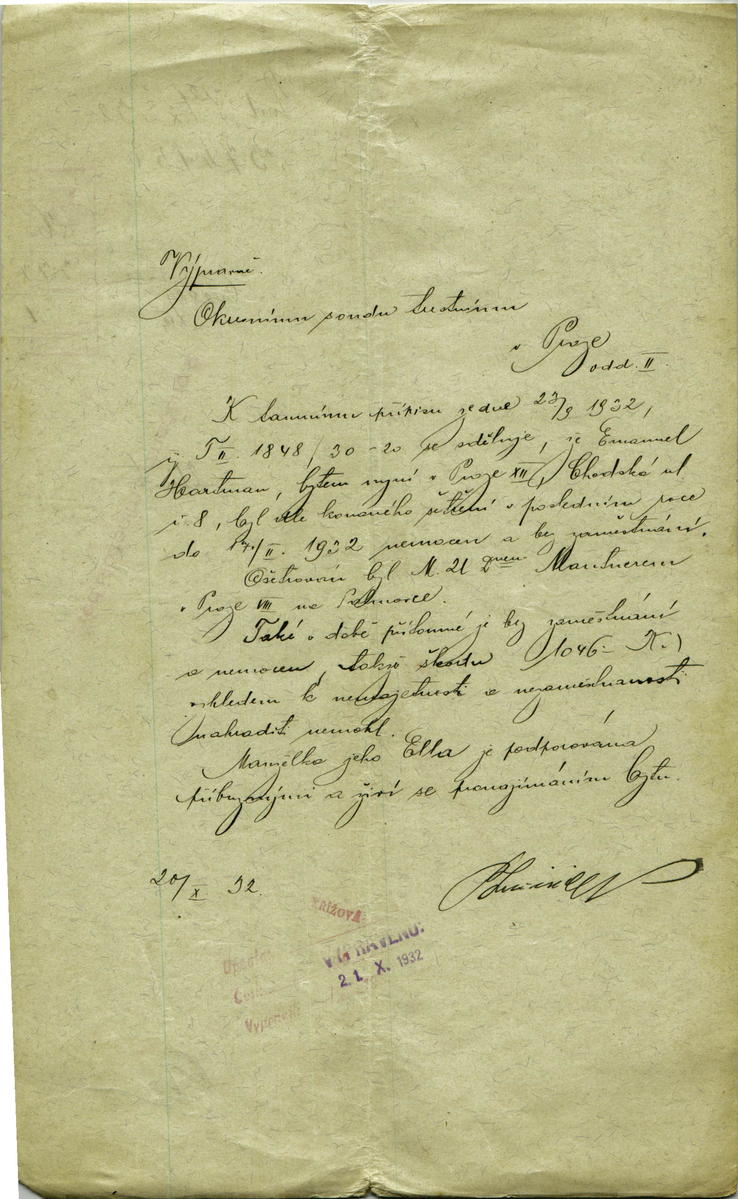 Výpravně.
Okresnímu soudu trestnímu
v Praze
odd. II.
K tamnímu přípisu ze dne 23/9 1932,
č. T II. 1848/30-20 se sděluje, že Emanuel
Hartman, bytem nyní v Praze XII, Chodská ul.
č. 8, byl dle konaného šetření v posledním roce
do 17/II. 1932 nemocen a bez zaměstnání.
Ošetřován byl M. U Drem Mautnerem
v Praze VIII na Palmovce.
Také v době přítomné je bez zaměstnání
a nemocen, takže škodu (1046- K.)
vzhledem k nemajetnosti a nezaměstnanosti
nahradit nemohl.
Manželka jeho Ella je podporována
příbuznými a živí se pronajímáním bytu.
20/X. 32.
KŘÍŽOVÁ
VYPRAVENO:
21. X. 1932
Opsáno